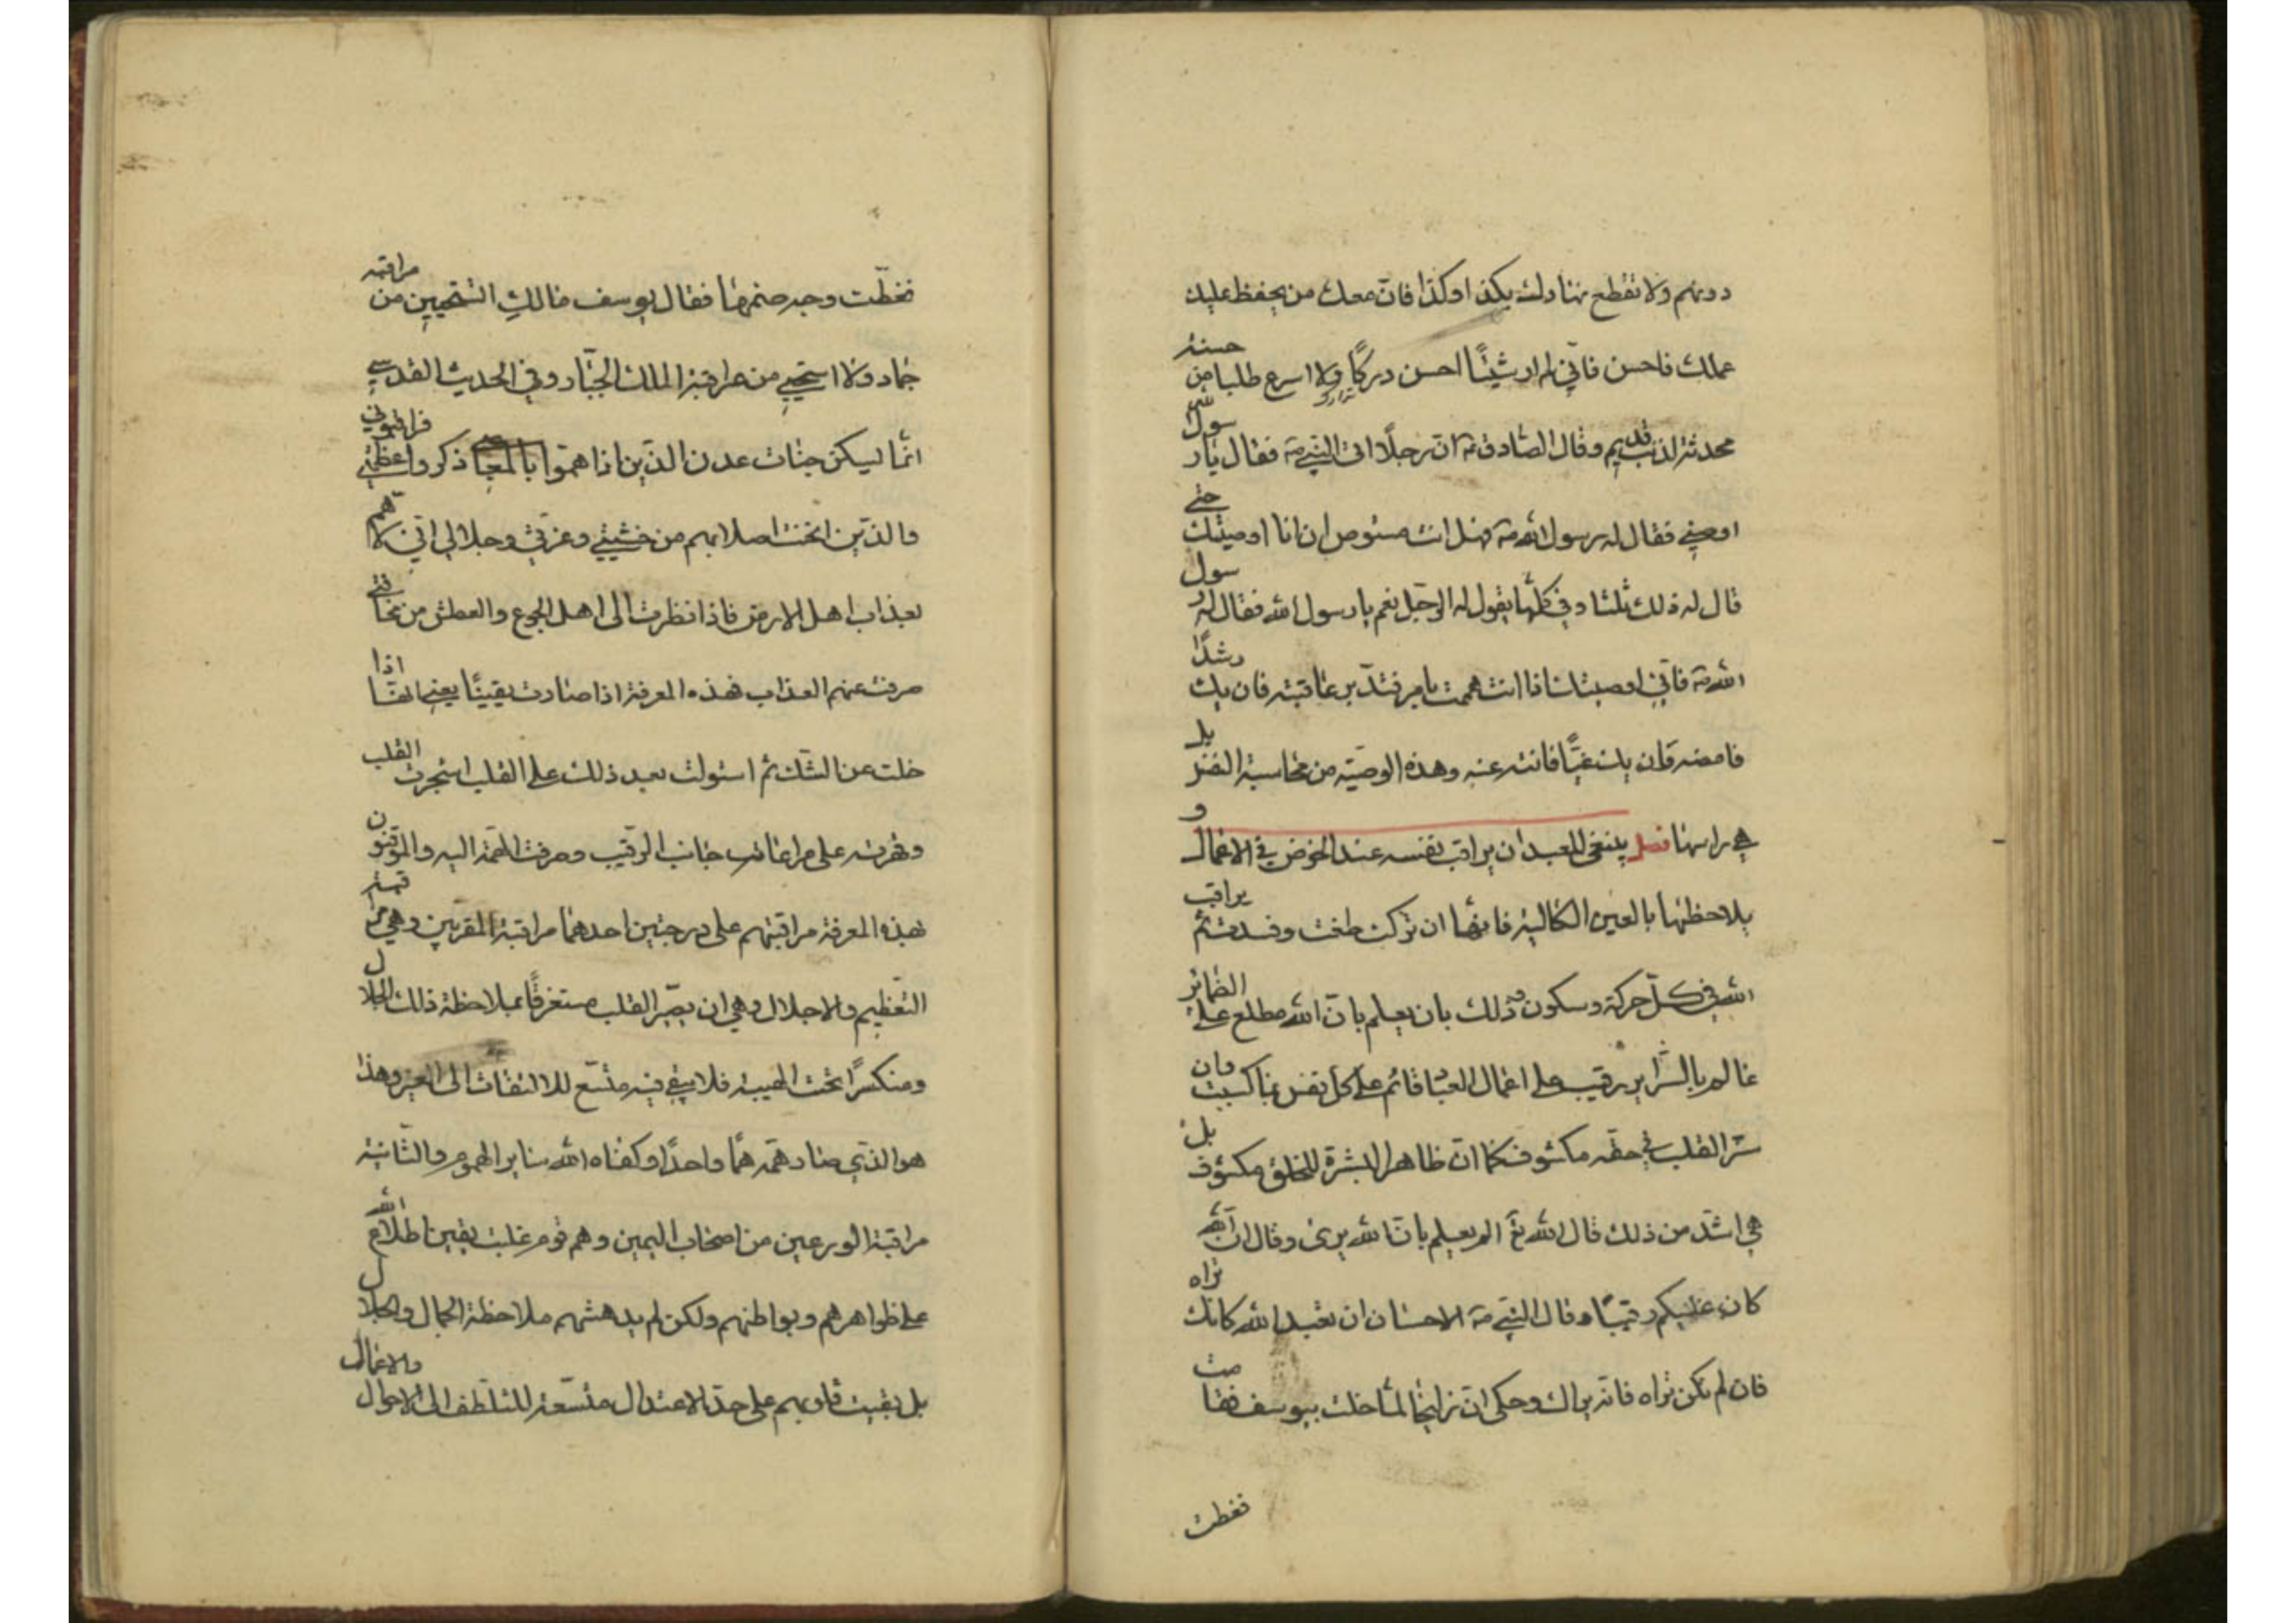 دونهم ولا تقطع نهارك بكذا وكذا فان معك من يحفظ عليك
عملك فاحسن فاني لم ار شيئا احسن دركا ولا اسرع طلبا من حسنة
محدثة لذنب قديم وقال الصادق ع ان رجلا اتى النبي ص فقال يا رسول الله
اوصني فقال له رسول الله ص فهل انت مستوص ان انا اوصيتك حتى
قال له ذلك ثلثا وفي كلها يقول له الرجل نعم يا رسول الله فقال له رسول
الله ص فاني اوصيك اذا انت هممت بامر فتدبر عاقبته فان يك رشدا
فامضه وان يك غيا فانته عنه وهذه الوصية من محاسبة النفس بل
هي راسها فصل ينبغي للعبد ان يراقب نفسه عند الخوض في الاعمال و
يلاحظها بالعين الكالية فانها ان تركت طغت وفسدت ثم يراقب
الله في كل حركة وسكون وذلك بان يعلم بان الله مطلع على الضمائر
عالم بالسراير رقيب على اعمال العباد قائم على كل نفس بما كسبت وان
سر القلب في حقه مكشوف كما ان ظاهر البشرة للخلق مكشوف بل
هي اشد من ذلك قال الله تع الم يعلم بان الله يرى وقال ان الله
كان عليكم رقيبا وقال النبي ص الاحسان ان تعبد الله كانك تراه
فان لم تكن تراه فانه يراك وحكى ان زليخا لما خلت بيوسف فقامت
فغطت
فغطت وجه صنمها فقال يوسف مالك اتستحيين من مراقبة
جماد ولا استحيي من مراقبة الملك الجبار وفي الحديث القدسي
انما يسكن جنات عدن الذين اذا هموا بالمعاصي ذكروا عظمتي فراقبوني
والذين انحنت اصلابهم من خشيتي وعزتي وجلالي اني لاهم
بعذاب اهل الارض فاذا نظرت الى اهل الجوع والعطش من مخافتي
صرفت عنهم العذاب فهذه المعرفة اذا صارت يقينا يعني انها اذا
خلت عن الشك ثم استولت بعد ذلك على القلب استجرت القلب
وقهرته على مراعات جانب الرقيب وصرفت الهمة اليه والموقنون
بهذه المعرفة مراقبتهم على درجتين احدهما مراقبة المقربين وهي مراقبة
التعظيم والاجلال وهي ان يصير القلب مستغرقا بملاحظة ذلك الجلال
ومنكسرا تحت الهيبة فلا يبقى فيه متسع للالتفات الى الغير وهذا
هو الذي صار همه هما واحدا وكفاه الله سائر الهموم والثانية
مراقبة الورعين من اصحاب اليمين وهم قوم غلب يقين اطلاع الله
على ظواهرهم وبواطنهم ولكن لم يدهشهم ملاحظة الجمال والجلال
بل بقيت قلوبهم على حد الاعتدال متسعة للتلطف الى الاحوال والاعمال